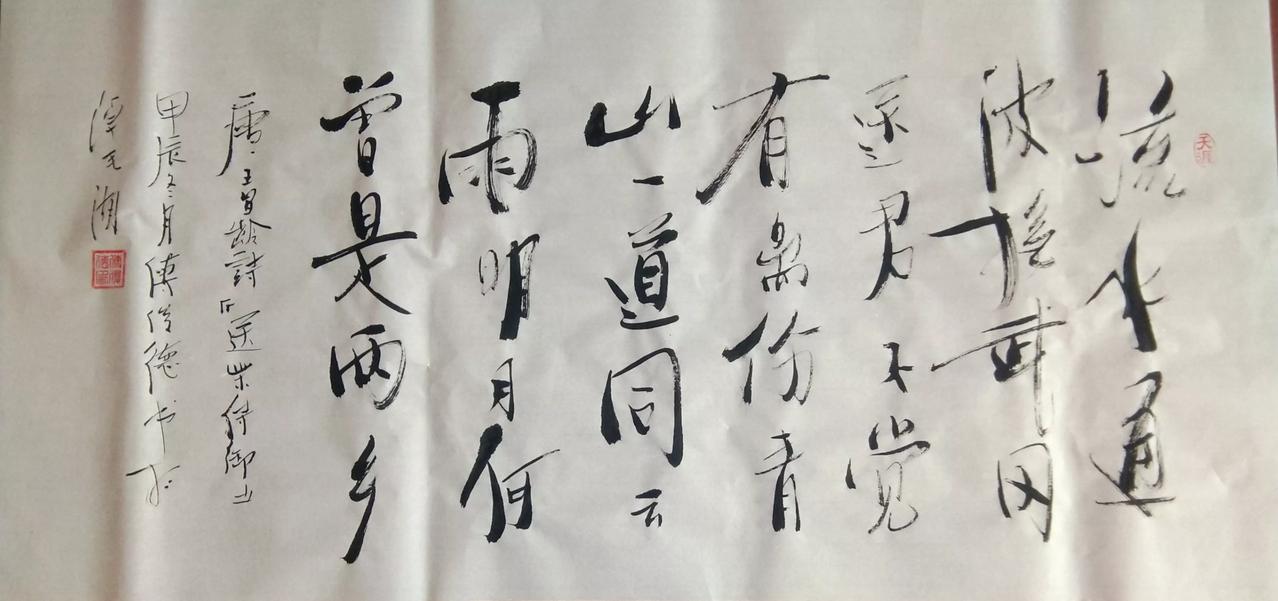 流水通
波接武冈
送君不觉
有离伤青
山一道同云
雨明月何
曾是两乡
唐王昌龄詩「送柴侍御」
甲辰冬月傅德书於
湖